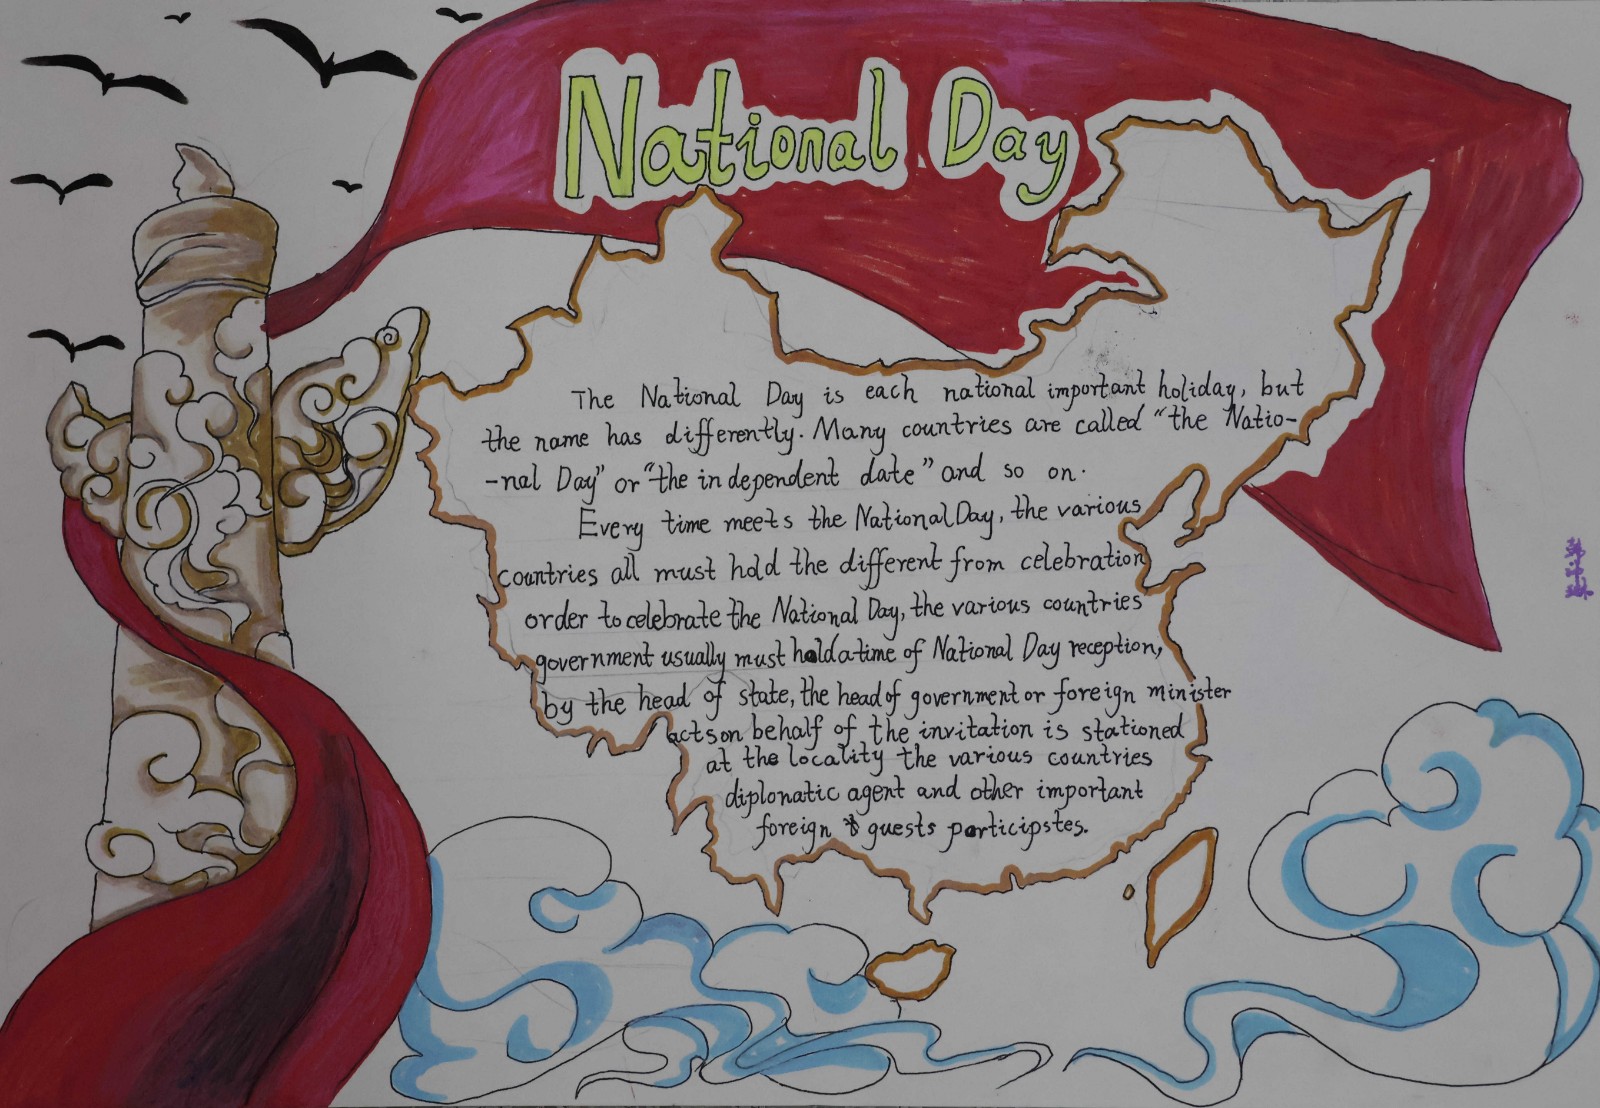 National Day
The National Day is each national important holiday, but
the name has differently. Many countries are called "the Natio-
-nal Day" or "the independent date" and so on.
Every time meets the National Day, the various
countries all must hold the different from celebration
order to celebrate the National Day, the various countries
government usually must hold a time of National Day reception,
by the head of state, the head of government or foreign minister
acts on behalf of the invitation is stationed
at the locality the various countries
diplonatic agent and other important
foreign guests participstes.